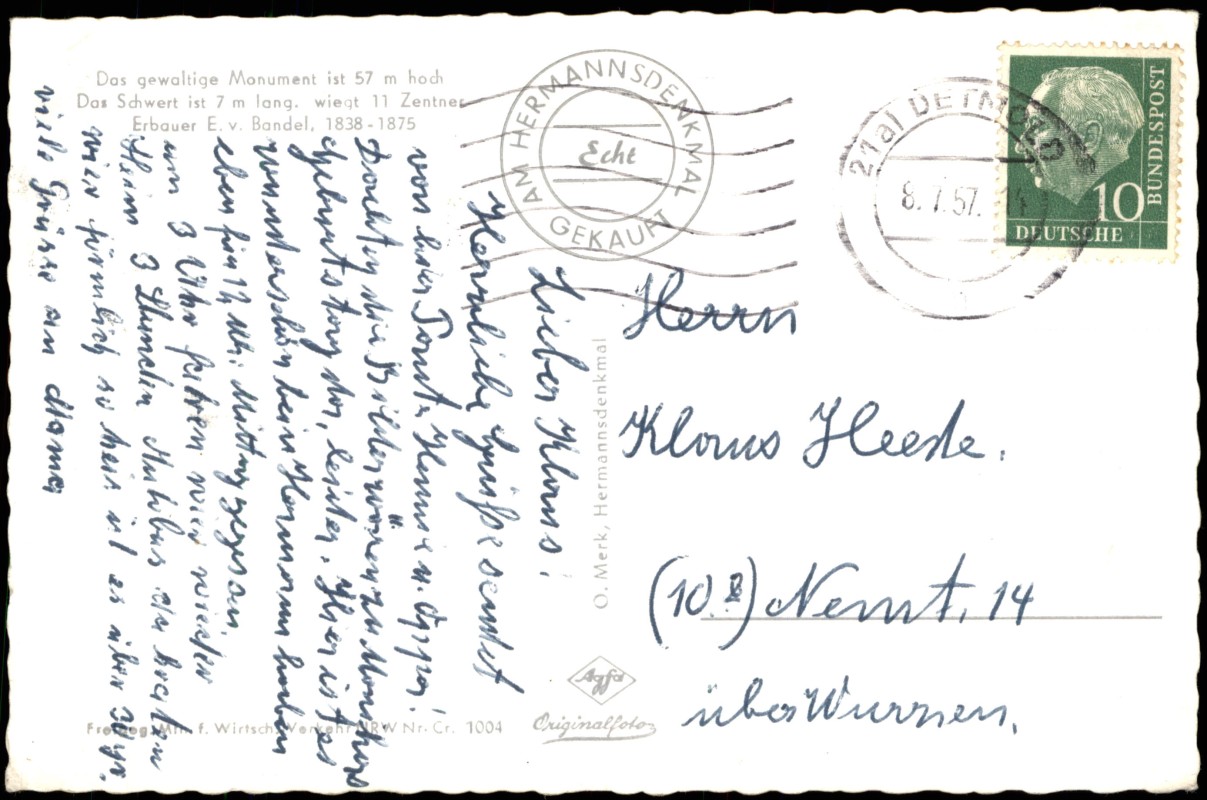 Das gewaltige Monument ist 57 m hoch
Das Schwert ist 7 m lang. wiegt 11 Zentner
Erbauer E. v. Bandel, 1838-1875
AM HERMANNSDENKMAL
Echt
GEKAUFT
21a DETMOLD
8.7.57.
10
DEUTSCHE
BUNDESPOST
Lieber Klaus!
Herrliche Grüße sendet
von hier Tante u. Oppa!
Dachte die Bilder wären zu
Geburtstag da, leider. Hier ist es
wunderschön beim Hermann haben
eben Mittag gegessen.
um 3 Uhr fahren wir wieder
Heim 3 Stunden Autobus
nämlich so heis ist es über 30
viele Grüsse an Mama
Herrn
Klaus Heede.
(10 ) Nemt, 14
über Wurzen.
O. Merk, Hermannsdenkmal
Agfa
Originalfoto
Freigeg. Min. f. Wirtsch. Verkehr NRW Nr. Cr. 1004